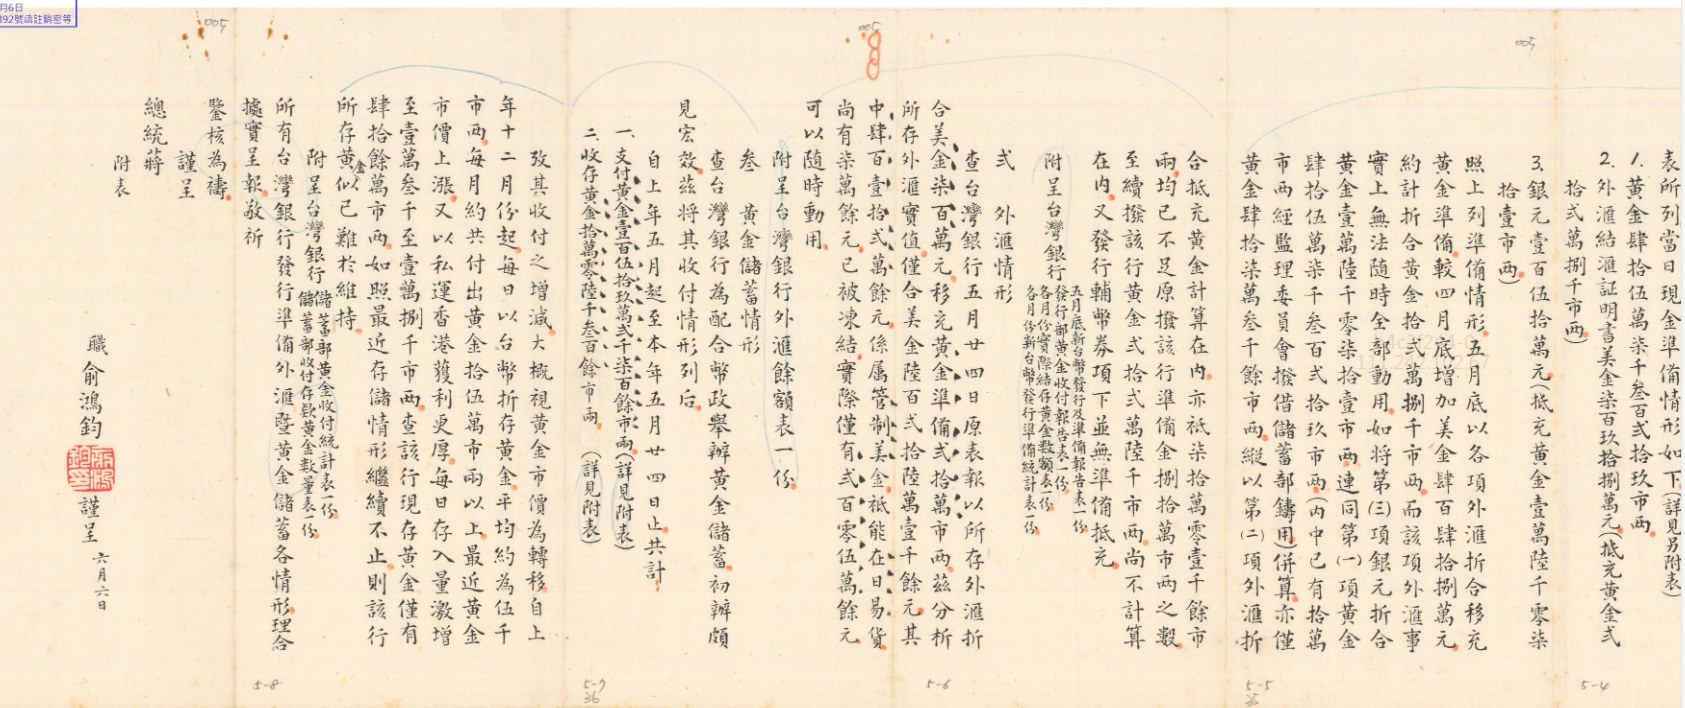 表所列當日現金準備情形如下(詳見另附表)
1.黃金肆拾伍萬柒千叁百弍拾玖市兩
2.外滙結滙証明書美金柒百玖拾捌萬元(抵充黃金弍
拾弍萬捌千市兩)
3.銀元壹百伍拾萬元(抵充黃金壹萬陸千零柒
拾壹市兩)
照上列準備情形五月底以各項外滙折合移充
黃金準備較四月底增加美金肆百肆拾捌萬元
約計折合黃金拾弍萬捌千市兩而該項外滙事
實上無法隨時全部動用如將第(三)項銀元折合
黃金壹萬陸千零柒拾壹市兩連同第(一)項黃金
肆拾伍萬柒千叁百弍拾玖市兩(內中已有拾萬
市兩經監理委員會撥借儲蓄部鑄用)併算亦僅
黃金肆拾柒萬叁千餘市兩縱以第(二)項外滙折
合抵充黃金計算在內亦祇柒拾萬零壹千餘市
兩均已不足原撥該行準備金捌拾萬市兩之數
至續撥該行黃金弍拾弍萬陸千市兩尚不計算
在內又發行輔幣券項下並無準備抵充
附呈台灣銀行
五月底新台幣發行及準備報告表一份
發行部黃金收付報告表一份
各月份實際結存黃金數額表一份
各月份新台幣發行準備統計表一份
弍 外滙情形
查台灣銀行五月廿四日原表報以所存外滙折
合美金柒百萬元移充黃金準備弍拾萬市兩茲分析
所存外滙實值僅合美金陸百弍拾陸萬壹千餘元其
中肆百壹拾弍萬餘元係属管制美金祇能在日易貨
尚有柒萬餘元已被凍結實際僅有弍百零伍萬餘元
可以隨時動用
附呈台灣銀行外滙餘額表一份
叁 黃金儲蓄情形
查台灣銀行為配合幣政舉辦黃金儲蓄初辦頗
見宏效茲將其收付情形列后
自上年五月起至本年五月廿四日止共計
一.支付黃金壹百伍拾玖萬弍千柒百餘市兩(詳見附表)
二.收存黃金拾萬零陸千叁百餘市兩 (詳見附表)
攷其收付之增減大概視黃金市價為轉移自上
年十二月份起每日以台幣折存黃金平均約為伍千
市兩每月約共付出黃金拾伍萬市兩以上最近黃金
市價上漲又以私運香港獲利更厚每日存入量激增
至壹萬叁千至壹萬捌千市兩查該行現存黃金僅有
肆拾餘萬市兩如照最近存儲情形繼續不止則該行
所存黃金似已難於維持
附呈台灣銀行
儲蓄部黃金收付統計表一份
儲蓄部收付存欵黃金數量表一份
所有台灣銀行發行準備外滙暨黃金儲蓄各情形理合
據實呈報敬祈
鑒核為禱
謹呈
總統蔣
附表
職 俞鴻鈞 謹呈 六月六日
005
005
005
5-4
5-5
5-6
5-7
36
5-8
月6日
392號函註銷密等